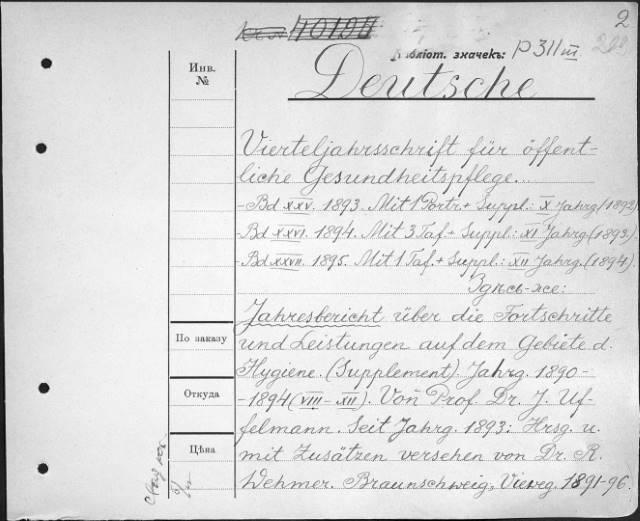 2
Библіот. значекъ: P 311 III
Инв.
№
Deutsche
Vierteljahrsschrift für öffent-
liche Gesundheitspflege...
- Bd XXV. 1893. Mit 1 Portr + Suppl: X Jahrg (1892)
- Bd XXVI. 1894. Mit 3 Taf + Suppl: XI Jahrg (1893)
- Bd XXVII. 1895. Mit 1 Taf + Suppl: XII Jahrg. (1894)
Здѣсь-же:
Jahresbericht über die Fortschritte
По заказу
und Leistungen auf dem Gebiete d.
Hygiene. (Supplement). Jahrg. 1890-
Откуда
- 1894 (VIII - XII). Von Prof. Dr. J. Uf-
felmann. Seit Jahrg. 1893: Hrsg. u.
Цѣна
mit Zusätzen versehen von Dr. R.
Wehmer. Braunschweig, Vieweg. 1891-96.